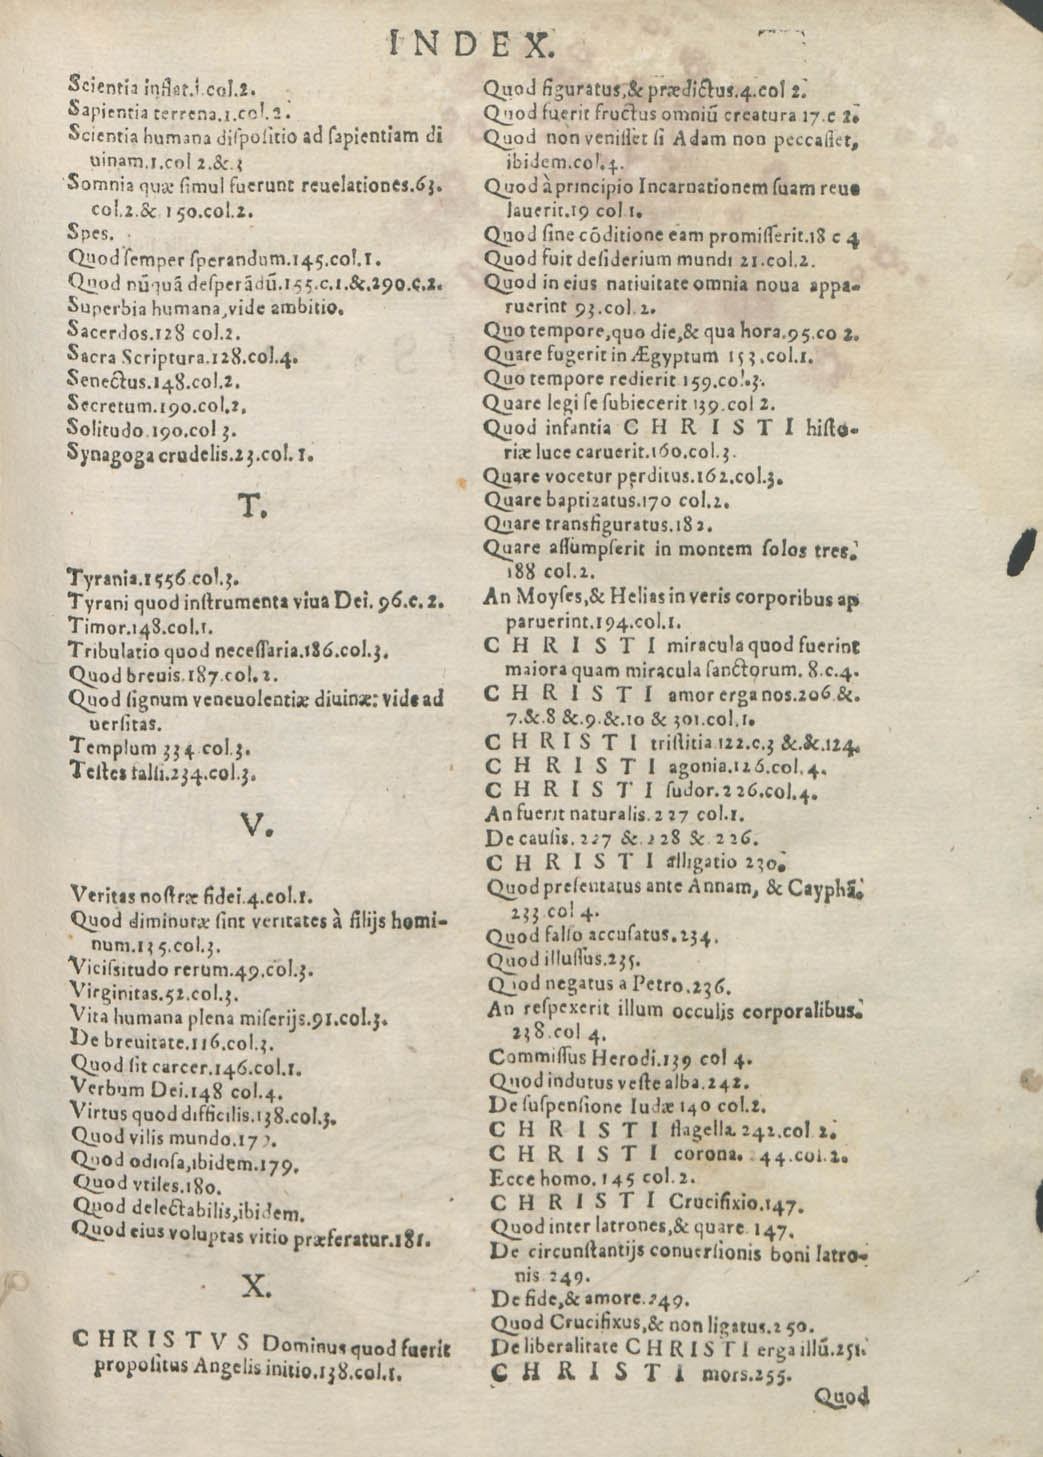 INDEX.
Scientia inflat.1.col.2.
Sapientia terrena.1.col.2.
Scientia humana dispositio ad sapientiam di
uinam.1.col 2.&.3
Somnia quæ simul fuerunt reuelationes.63.
col.2.& 150.col.2.
Spes.
Quod semper sperandum.145.col.1.
Quod nũquã desperãdũ.155.c.1.&.290.c.2.
Superbia humana,vide ambitio.
Sacerdos.128 col.2.
Sacra Scriptura.128.col.4.
Senectus.148.col.2.
Secretum.190.col.2.
Solitudo.190.col 3.
Synagoga crudelis.23.col.1.
T.
Tyrania.1556 col.3.
Tyrani quod instrumenta viua Dei. 96.c.2.
Timor.148.col.1.
Tribulatio quod necessaria.186.col.3.
Quod breuis.187.col.2.
Quod signum veneuolentiæ diuinæ: vide ad
uersitas.
Templum 334 col.3.
Testes falsi.234.col.3.
V.
Veritas nostræ fidei.4.col.1.
Quod diminutæ sint veritates à filijs homi-
num.135.col.3.
Vicissitudo rerum.49.col.3.
Virginitas.52.col.3.
Vita humana plena miserijs.91.col.3.
De breuitate.116.col.3.
Quod sit carcer.146.col.1.
Verbum Dei.148 col.4.
Virtus quod difficilis.138.col.3.
Quod vilis mundo.
Quod odiosa,ibidem.179.
Quod vtiles.180.
Quod delectabilis,ibidem.
Quod eius voluptas vitio præferatur.181.
X.
CHRISTVS Dominus quod fuerit
propositus Angelis initio.138.col.1.
Quod figuratus,& prædictus.4.col 2.
Quod fuerit fructus omniũ creatura 17.c 2.
Quod non venisset si Adam non peccasset,
ibidem.col.4.
Quod à principio Incarnationem suam reue
lauerit.19 col 1.
Quod sine cõditione eam promisserit.18 c 4
Quod fuit desiderium mundi 21.col.2.
Quod in eius natiuitate omnia noua appa-
ruerint 93.col.2.
Quo tempore,quo die,& qua hora.95.co 2.
Quare fugerit in Ægyptum 153.col.1.
Quo tempore redierit 159.col.3.
Quare legi se subiecerit 139.col 2.
Quod infantia CHRISTI histo-
riæ luce caruerit.160.col.3.
Quare vocetur perditus.162.col.3.
Quare baptizatus.170 col.2.
Quare transfiguratus.182.
Quare assumpserit in montem solos tres.
188 col.2.
An Moyses,& Helias in veris corporibus ap
paruerint.194.col.1.
CHRISTI miracula quod fuerint
maiora quam miracula sanctorum. 8.c.4.
CHRISTI amor erga nos.206.&.
7.&.8 &.9.&.10 & 301.col.1.
CHRISTI tristitia.122.c.3 &.&.124.
CHRISTI agonia.126.col.4.
CHRISTI sudor.226.col.4.
An fuerit naturalis.227 col.1.
De causis. 227 &.228 & 226.
CHRISTI alligatio 230.
Quod presentatus ante Annam, & Cayphã.
233 col 4.
Quod falso accusatus.234.
Quod illusus.235.
Quod negatus a Petro.236.
An respexerit illum occulis corporalibus.
238.col 4.
Commissus Herodi.139 col 4.
Quod indutus veste alba.242.
De suspensione Iudæ 140 col.2.
CHRISTI flagella.242.col 2.
CHRISTI corona. 44.col.2.
Ecce homo. 145 col.2.
CHRISTI Crucifixio.147.
Quod inter latrones,& quare 147.
De circunstantijs conuersionis boni latro-
nis 249.
De fide,& amore.249.
Quod Crucifixus,& non ligatus.250.
De liberalitate CHRISTI erga illũ.251.
CHRISTI mors.255.
Quod